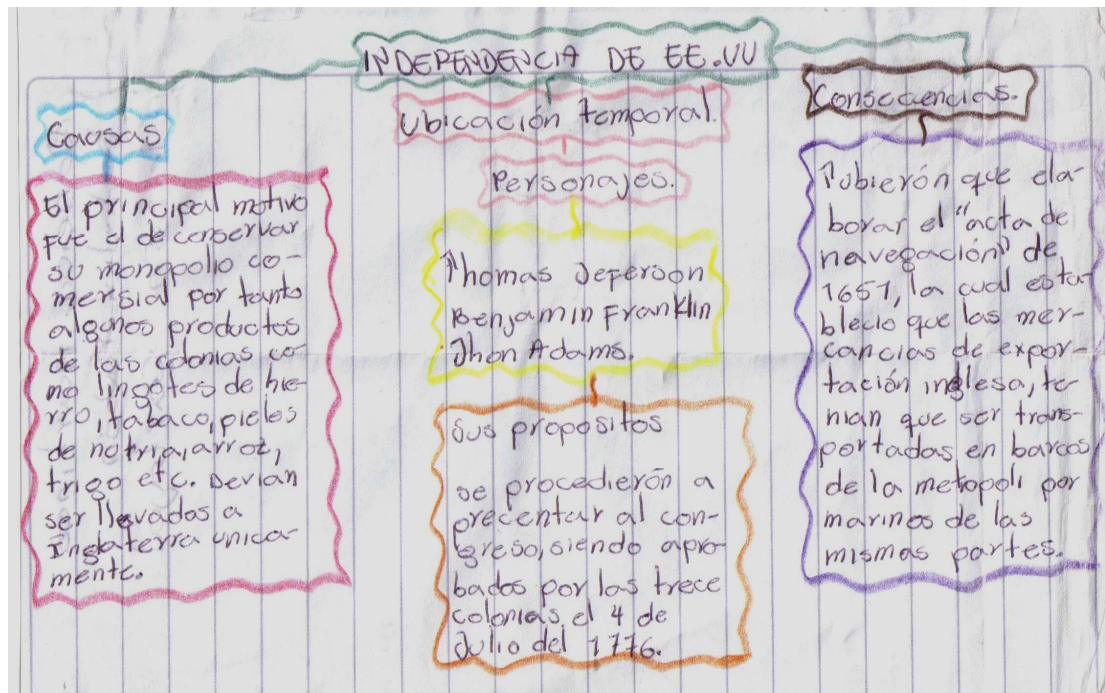 INDEPENDENCIA DE EE.UU
Causas
El principal motivo
fue el de conservar
su monopolio co-
mersial por tanto
algunos productos
de las colonias co-
mo lingotes de hie-
rro, tabaco, pieles
de notria, arroz,
trigo etc. Devian
ser llevados a
Inglaterra unica-
mente.
Ubicación temporal.
Personajes.
Thomas Jeferson
Benjamin Franklin
Jhon Adams.
Sus propositos
se procedierón a
precentar al con-
greso, siendo apro-
bados por las trece
colonias el 4 de
Julio del 1776.
Consecuencias.
Tubierón que ela-
borar el "acta de
navegación" de
1651, la cual esta-
blecio que las mer-
cancias de expor-
tación inglesa, te-
nian que ser trans-
portadas en barcos
de la metropoli por
marinos de las
mismas partes.